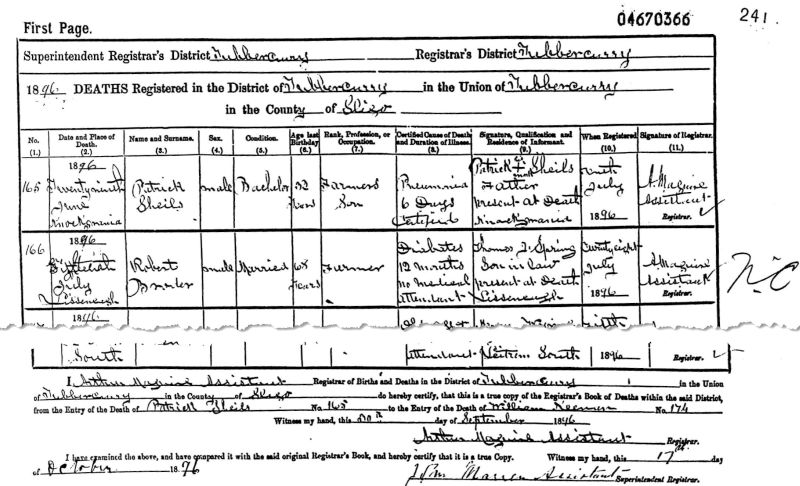 First Page.
04670366
241.
Superintendent Registrar's District Tubbercurry Registrar's District Tubbercurry
1896. DEATHS Registered in the District of Tubbercurry in the Union of Tubbercurry
in the County of Sligo
No. (1.) Date and Place of Death. (2.) Name and Surname. (3.) Sex. (4.) Condition. (5.) Age last Birthday (6.) Rank, Profession, or Occupation. (7.) Certified Cause of Death and Duration of Illness. (8.) Signature, Qualification and Residence of Informant. (9.) When Registered (10.) Signature of Registrar. (11.)
165 1896 Twenty ninth June Knocknania Patrick Sheils male Bachelor 32 Years Farmers Son Pneumonia 6 Days Certified Patrick Sheils Father present at Death July 1896 A. Maguire Assistant Registrar.
166 1896 July Lisseneagh Robert male Married 68 Years Farmer Diabetes 12 months no medical attendant Thomas J. Spring Son in law present at Death Lisseneagh Twenty eight July 1896 A Maguire Assistant Registrar.
N.C
1896.
South attendant South 1896 Registrar.
I, Arthur Maguire Assistant Registrar of Births and Deaths in the District of Tubbercurry in the Union
of Tubbercurry in the County of Sligo do hereby certify, that this is a true copy of the Registrar's Book of Deaths within the said District,
from the Entry of the Death of Patrick Sheils No. 165 to the Entry of the Death of William No. 174
Witness my hand, this 20th day of September 1896
Arthur Maguire Assistant Registrar.
I have examined the above, and have compared it with the said original Registrar's Book, and hereby certify that it is a true Copy. Witness my hand, this 17th day
of October 1896 Assistant Superintendent Registrar.